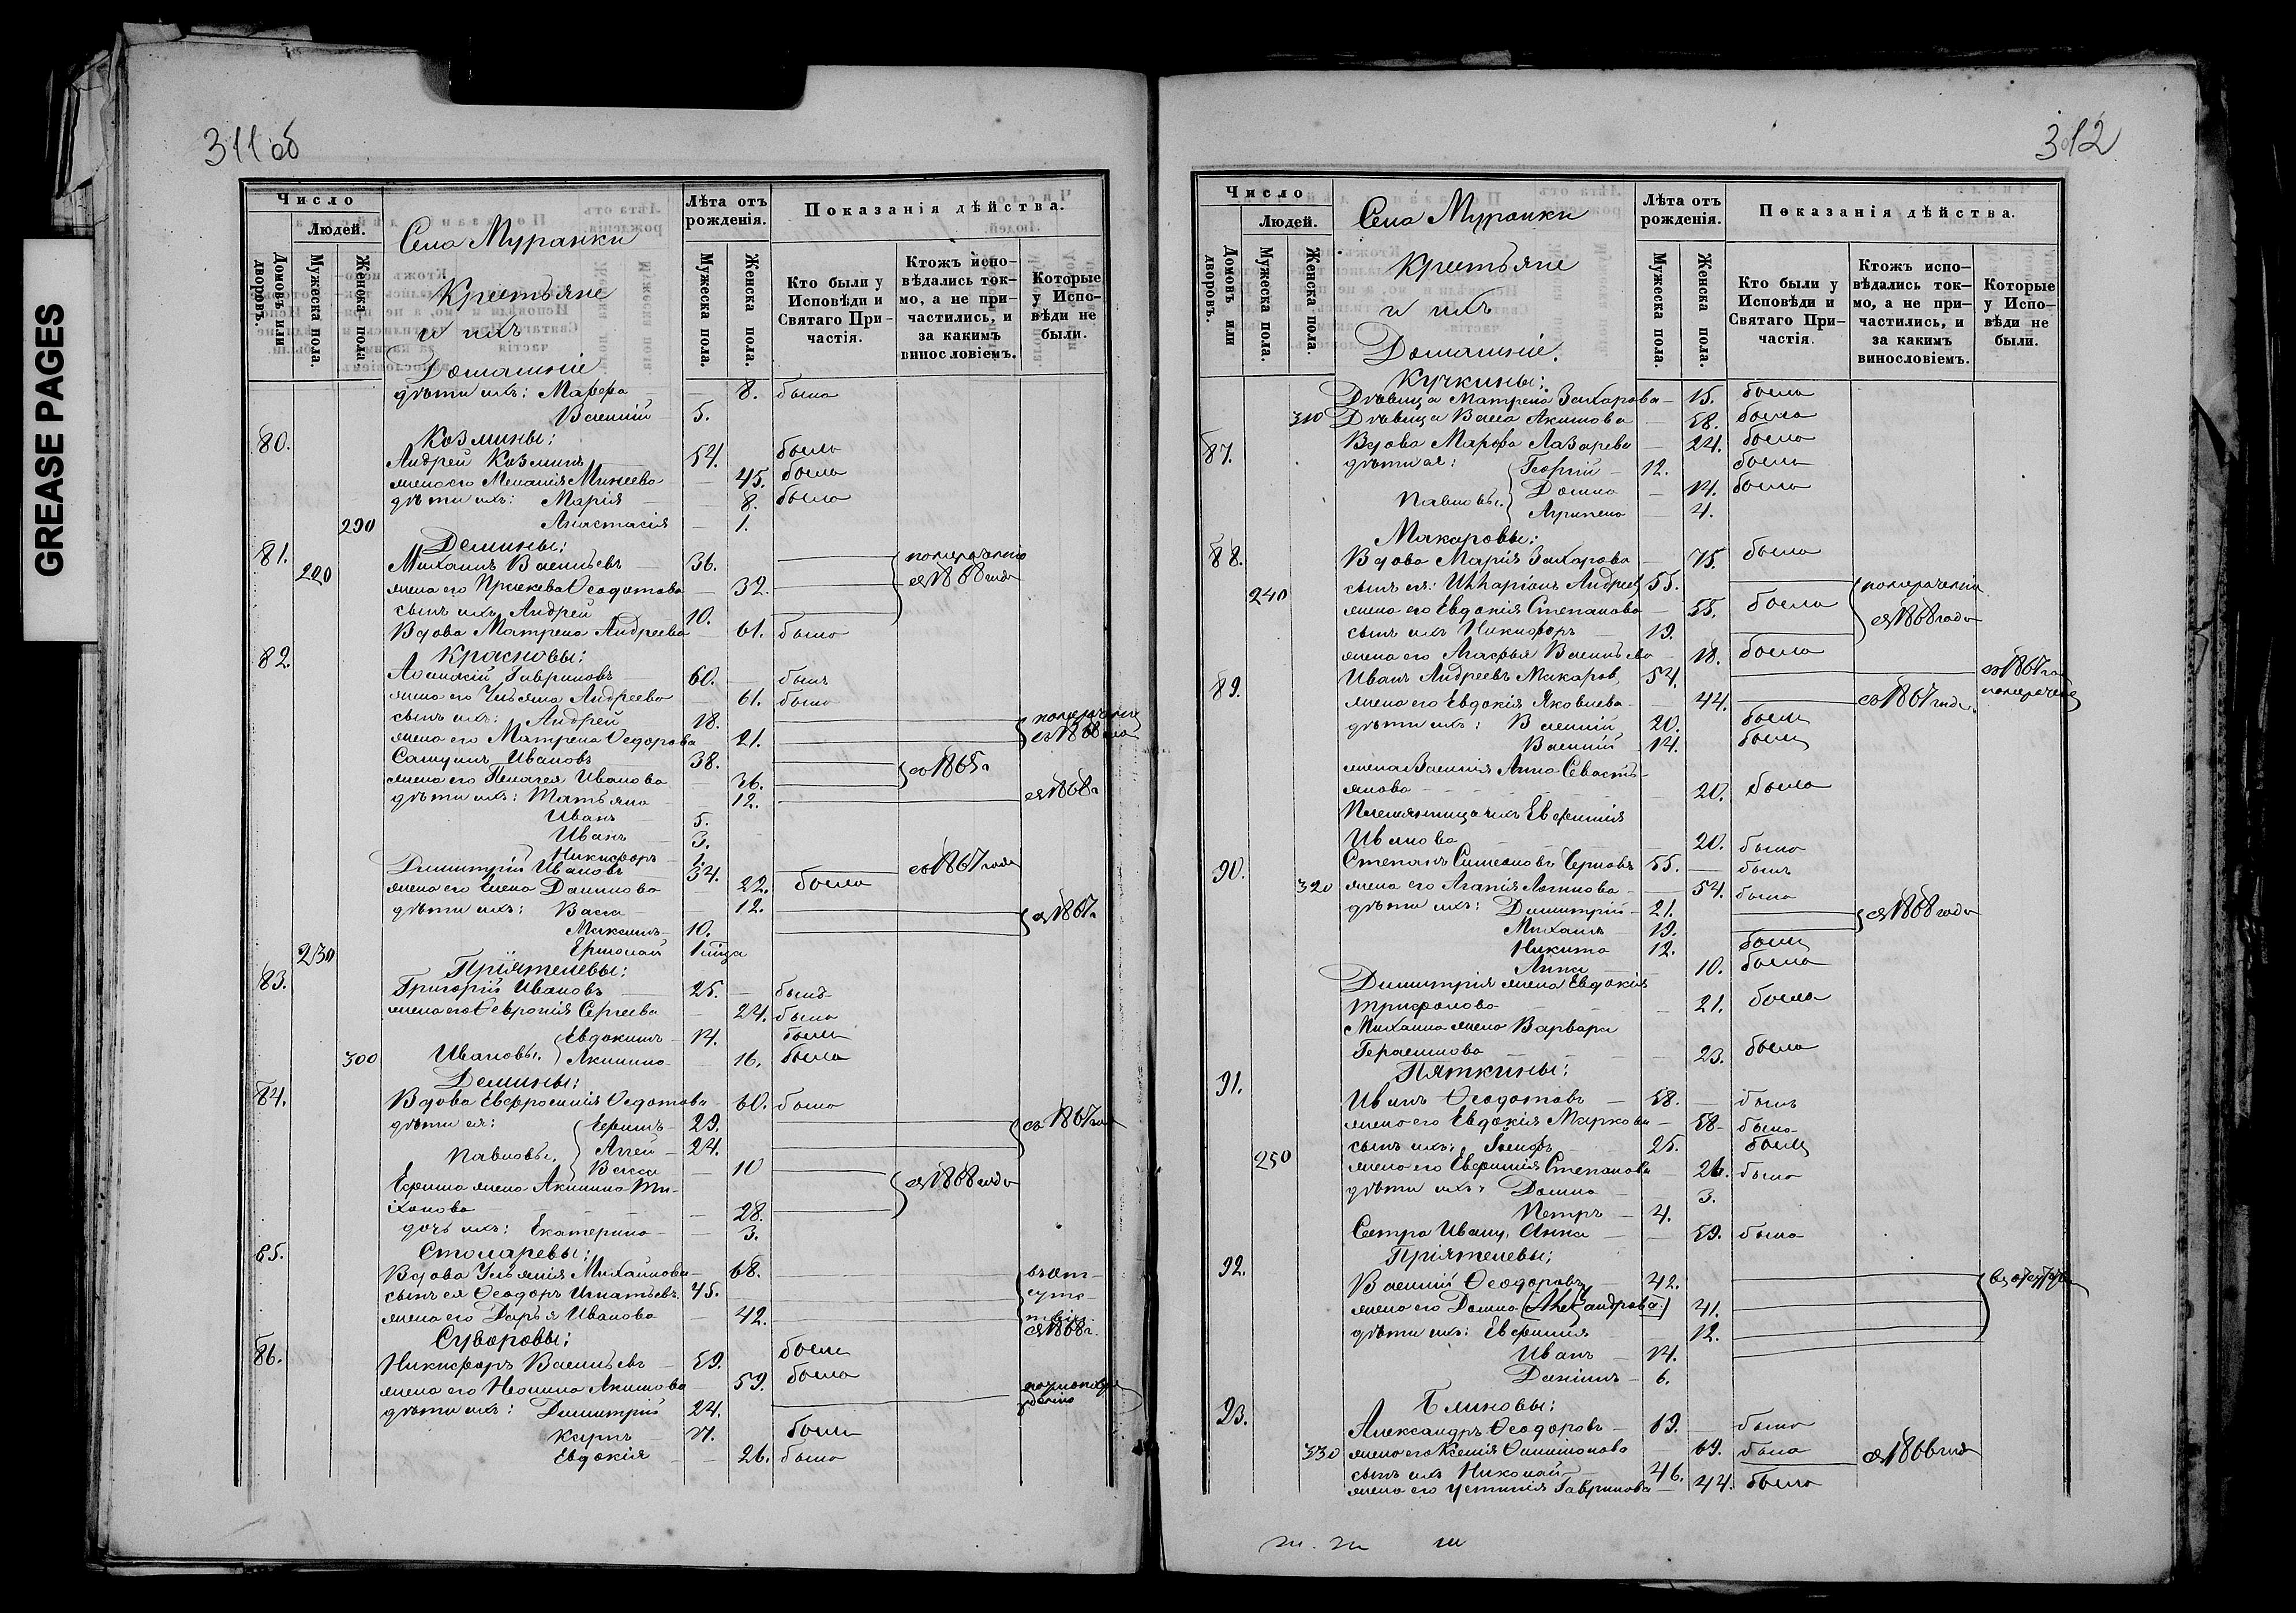 GREASE PAGES
311 об
Число
Людей.
Домовъ или дворовъ.
Мужеска пола.
Женска пола
Села Муранки
Крестьяне
и ихъ
Домашніе
Лѣта отъ рожденія.
Мужеска пола.
Женска пола.
Показанія дѣйства.
Кто были у Исповѣди и Святаго Причастія.
Ктожъ исповѣдались токмо, а не причастились, и за какимъ винословіемъ.
Которые у Исповѣди не были.
дѣти ихъ: Марфа — 8. была
Василій 5.
80. Козмины:
Андрей Козминъ 54. былъ
жена его Меланія Минеева 45. была
дѣти ихъ: Марія 8. была
290 Анастасія 1.
81. Демины:
220 Михаилъ Васильевъ 36.
жена его Праскева Ѳеодотова 32. съ 1868 года
сынъ ихъ Андрей 10.
Вдова Матрена Андреева 61. была
82. Красновы:
Гавриловъ 60. былъ
жена его Ульяна Андреева 61. была
сынъ ихъ: Андрей 18.
жена его Матрена Ѳедорова 21.
Самуилъ Ивановъ 38. со 1865 г
жена его Пелагея Иванова 36.
дѣти ихъ: Татьяна 12. съ 1868 г
Иванъ 5.
Иванъ 3.
Никифоръ 1.
Димитрій Ивановъ 34. со 1867 года
жена его Елена Данилова 22. была
дѣти ихъ: Васса 12. съ 1867 г
Максимъ 10.
230 Ермолай 1
83. Пріятелевы:
Григорій Ивановъ 25. былъ
жена его Ѳевронія Сергеева 24. была
Ивановы. Евдокимъ 14. былъ
300 Акилина 16. была
Демины:
84. Вдова Евфросинія Ѳедотова 60. была
дѣти ея: Ефимъ 29. съ 1867 года
Павловы. Аггей 24.
Васса 10
Ефима жена Акилина Ти- съ 1868 года
хонова 28.
дочь ихъ: Екатерина 3.
85. Столяревы:
Вдова Ульянія Михайлова 68. въ от-
сынъ ея Ѳеодоръ Игнатьевъ 45. сутс-
жена его Дарья Иванова 42. твіи
съ 1868 г.
Суворовы:
86. Никифоръ Васильевъ 59. былъ
жена его Неонила Акимова 59. была
дѣти ихъ: Димитрій 24.
Карпъ былъ
Евдокія 26. была
312
Число
Людей.
Домовъ или дворовъ.
Мужеска пола.
Женска пола.
Села Муранки
Крестьяне
и ихъ
Домашніе.
Лѣта отъ рожденія.
Мужеска пола.
Женска пола.
Показанія дѣйства.
Кто были у Исповѣди и Святаго Причастія.
Ктожъ исповѣдались токмо, а не причастились, и за какимъ винословіемъ.
Которые у Исповѣди не были.
Кучкины:
Дѣвица Матрена Захарова 15. была
310 Дѣвица Васса Акимова 58. была
87. Вдова Марфа Лазарева 24. была
дѣти ея: Георгій 12. былъ
Павловы. Домна 14. была
Агрипена 4.
Макаровы:
88. Вдова Марія Захарова 75. была
240 сынъ ея: Илларіонъ Андреев 55.
жена его Евдокія Степанова 55. была съ 1868 года
сынъ ихъ Никифоръ 19.
жена его Агафья Васильева 18. была
89. Иванъ Андреевъ Макаров 54. со 1867 го
жена его Евдокія Яковлева 44. со 1867 года.
дѣти ихъ: Василій 20. былъ
Василій 14. былъ
жена Василія Анна Севасть-
янова 20. была
Племянница ихъ Евфимія
Иванова 20. была
90. Степанъ Симеоновъ Черновъ 55. былъ
320 жена его Агапія Логинова 54. была
дѣти ихъ: Димитрій 21. съ 1868 года
Михаилъ 19.
Никита 12. былъ
Анна 10. была
Димитрія жена Евдокія
Трифонова 21. была
Михаила жена Варвара
Герасимова 23. была
91. Пяткины:
Иванъ Ѳеодотовъ 58. былъ
жена его Евдокія Маркова 58. была
сынъ ихъ: Іосифъ 25. былъ
250 жена его Евфимія Степанова 26. была
дѣти ихъ: Домна 3.
Петръ 4.
Сестра Ивану, Анна 59. была
92. Пріятелевы:
Василій Ѳеодоровъ 42. въ отсут
жена его Домна (Александрова) 41.
дѣти ихъ: Евфимія 12.
Иванъ 14.
Даніилъ 6.
93. Блиновы:
Александръ Ѳеодоровъ 69. былъ
330 жена его Ксенія Филимонова 69. была
сынъ ихъ Николай 46. съ 1866 года
жена его Устинія Гаврилова 44. была